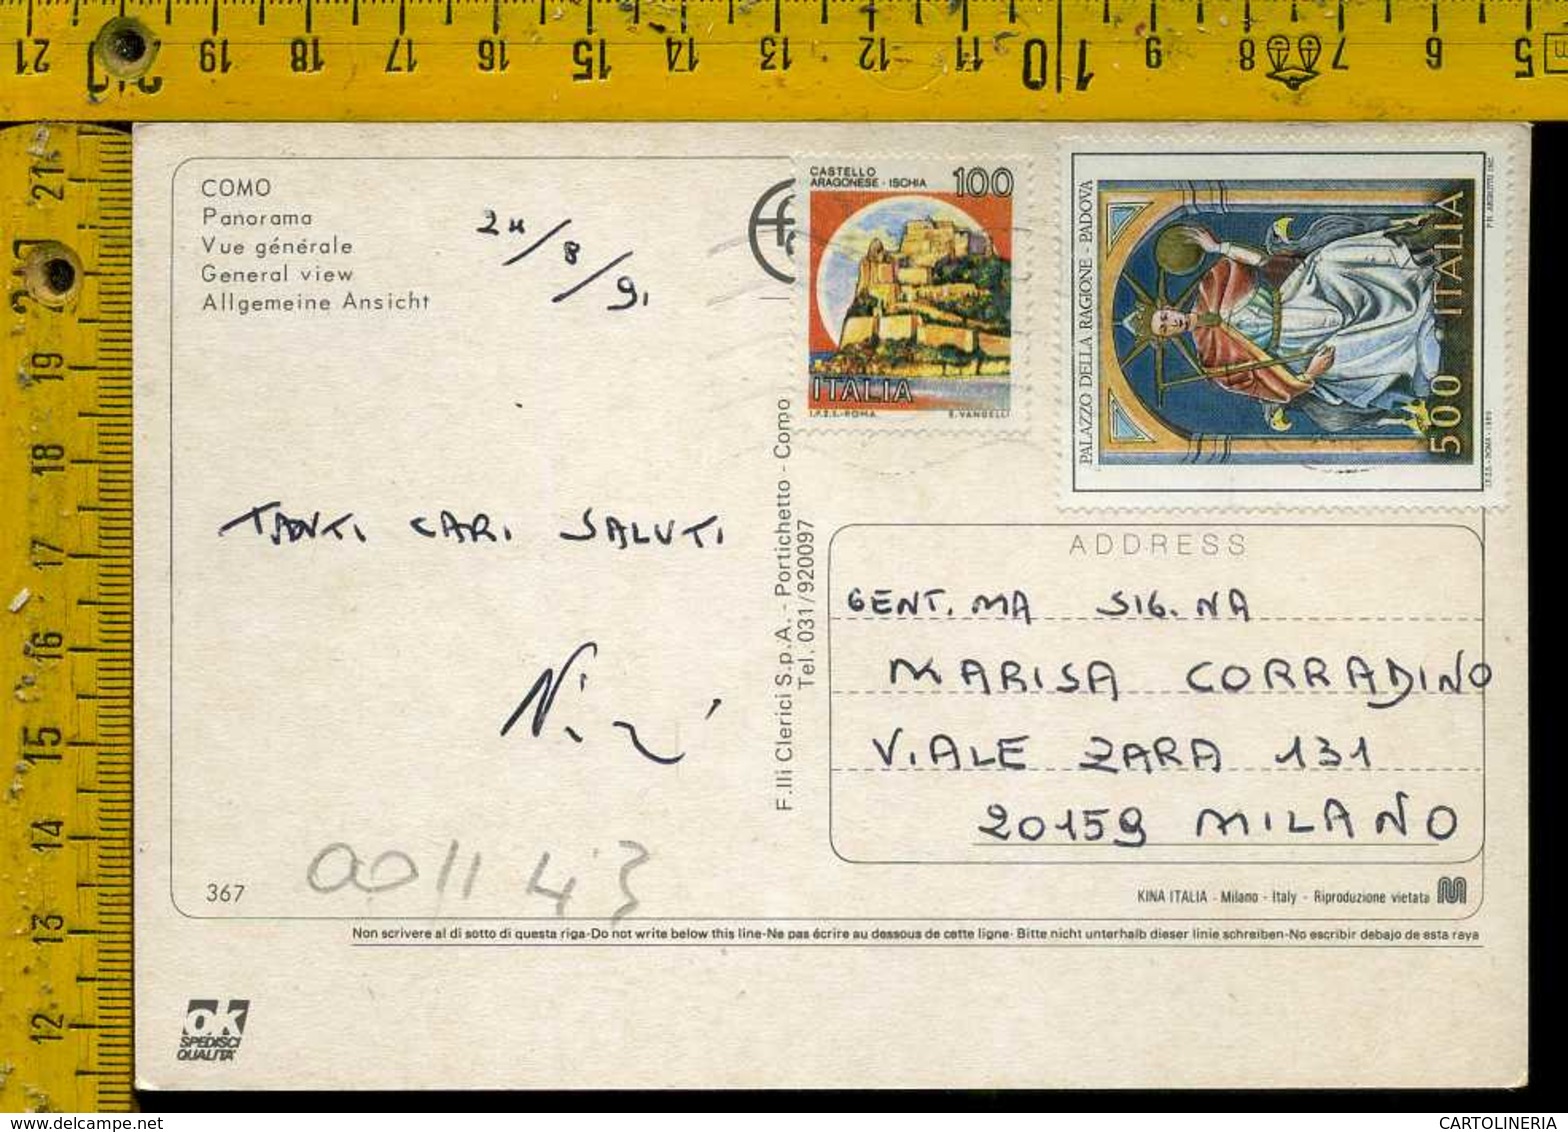 21 20 19 18 17 16 15 14 13 12 11 10 1 9 8 7 6 5
21
20
19
18
17
16
15
14
13
12
COMO
Panorama
Vue générale
General view
Allgemeine Ansicht
24/8/91
CASTELLO
ARAGONESE - ISCHIA
100
ITALIA
I.P.Z.S.-ROMA E. VANGELLI
PALAZZO DELLA RAGIONE - PADOVA
500 ITALIA
TANTI CARI SALUTI
F.lli Clerici S.p.A. - Portichetto - Como
Tel. 031/920097
ADDRESS
GENT.MA SIG.NA
MARISA CORRADINO
VIALE ZARA 131
20159 MILANO
367
001143
KINA ITALIA - Milano - Italy - Riproduzione vietata
Non scrivere al di sotto di questa riga-Do not write below this line-Ne pas écrire au dessous de cette ligne- Bitte nicht unterhalb dieser linie schreiben-No escribir debajo de esta raya
OK
SPEDISCI
QUALITA'
CARTOLINERIA